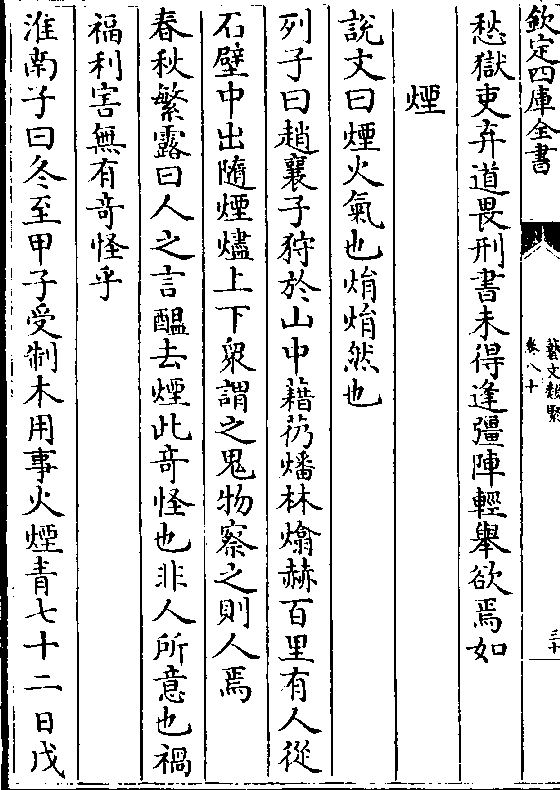 欽定四庫全書
藝文類聚
卷八十
三十
愁獄吏弃道畏刑書未得逢彊陣輕舉欲焉如
煙
說文曰煙火氣也焆焆然也
列子曰趙襄子狩於山中藉芿燔林熻赫百里有人從
石壁中出隨煙燼上下衆謂之鬼物察之則人焉
春秋繁露曰人之言醖去煙此奇怪也非人所意也禍
福利害無有奇怪乎
淮南子曰冬至甲子受制木用事火煙青七十二日戊